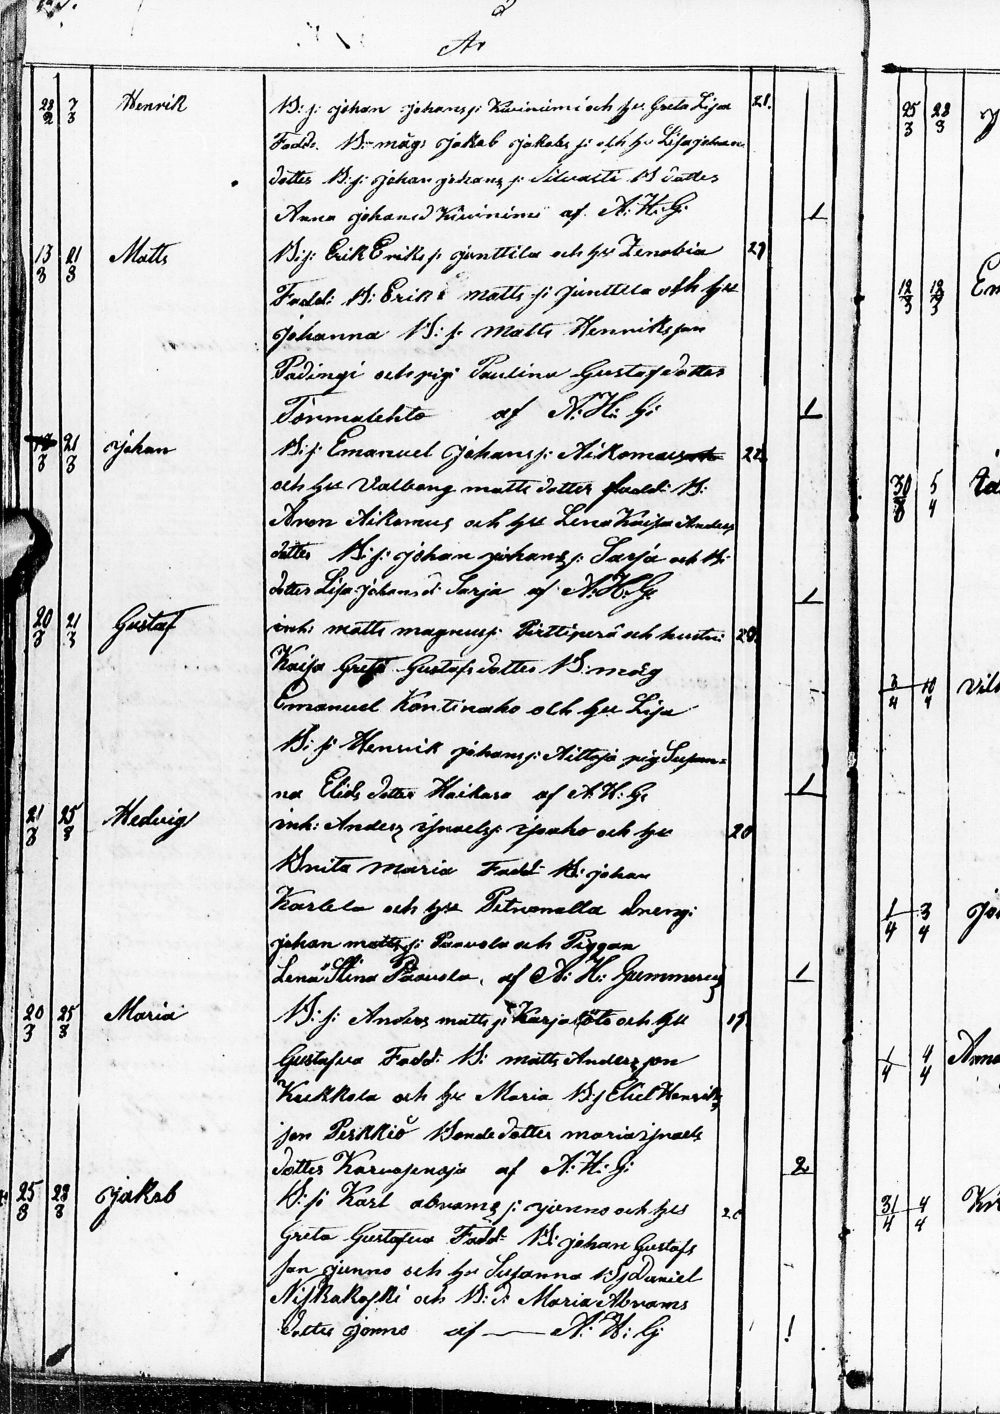 År
28/2 7/3 Henrik B: s: Johan Johans s: Kiviniemi och hu: Greta Lisa 28.
Fadd: B: måg: Jakob Jakobs s: och hu: Lisa Johans
dotter B: s: Johan Johans s: Silvasti B dotter
Anna Johans d Kiviniemi af A: H: G: 1
13/3 21/3 Matts B: s: Erik Eriks s: Junttila och hu: Zenobia 29
Fadd: B: Erik Matts s: Junttila och hu:
Johanna B: s: Matts Henriksson
Padingi och pig: Paulina Gustafsdotter
Törmälehto af A: H: G: 1
21/3 Johan B: s: Emanuel Johans s: Aikomus 22
och hu: Valborg Matts dotter Fadd: B:
Aron Aikomus och hu: Lena Kaisa Anders
dotter B: s: Johan Johans s: Sarja och B:
dotter Lisa Johans d: Sarja af A: H: G: 1
20/3 21/3 Gustaf inh: Matts Magnus s: Pirttiperä och hustru
Kaisa Greta Gustafs dotter B: måg
Emanuel Kontinaho och hu: Lisa
B: s: Henrik Johans s: Aittoja pig Susan=
na Elids dotter Haikara af A: H: G: 1
21/3 25/3 Hedvig inh: Anders Israels s: Isoaho och hu: 20
Brita Maria Fadd: B: Johan
Karlela och hu: Petronella dreng:
Johan Matts s: Paavola och Piggan
Lena Stina Paavola, af A: H: Gummerus 1
20/3 25/3 Maria B: s: Anders Matts s: Karja och hu: 19.
Gustafva Fadd: B: Matts Andersson
Kukkola och hu: Maria B: s Eliel Henrik
son Perkkiö Bonde dotter Maria Israels
dotter Karvosenoja af A: H: G: 2
25/3 28/3 Jakob B: s: Karl Abrams s: Junno och hu:
Greta Gustafva Fadd: B: Johan Gustafs
son Junno och hu: Susanna B: s: Daniel
Niskakoski och B: d: Maria Abrams
dotter Jonno af A: H: G: 1
25/3 28/3 J
12/3 19/3 Em
30/3 5/4
3/4 10/4 Vil
1/4 3/4 Jo
1/4 4/4 Anna
31/4 4/4 Kr